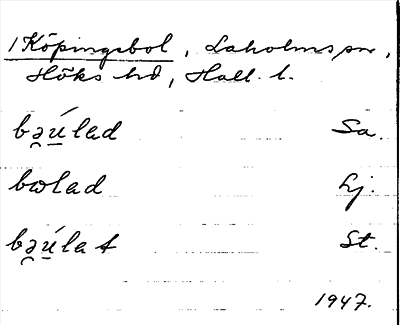 1 Köpingsbol, Laholms sn,
Höks hd, Hall. l.
bə̯ú̲lad Sa.
bωlad Lj.
bə̯ú̲lat St.
1947.